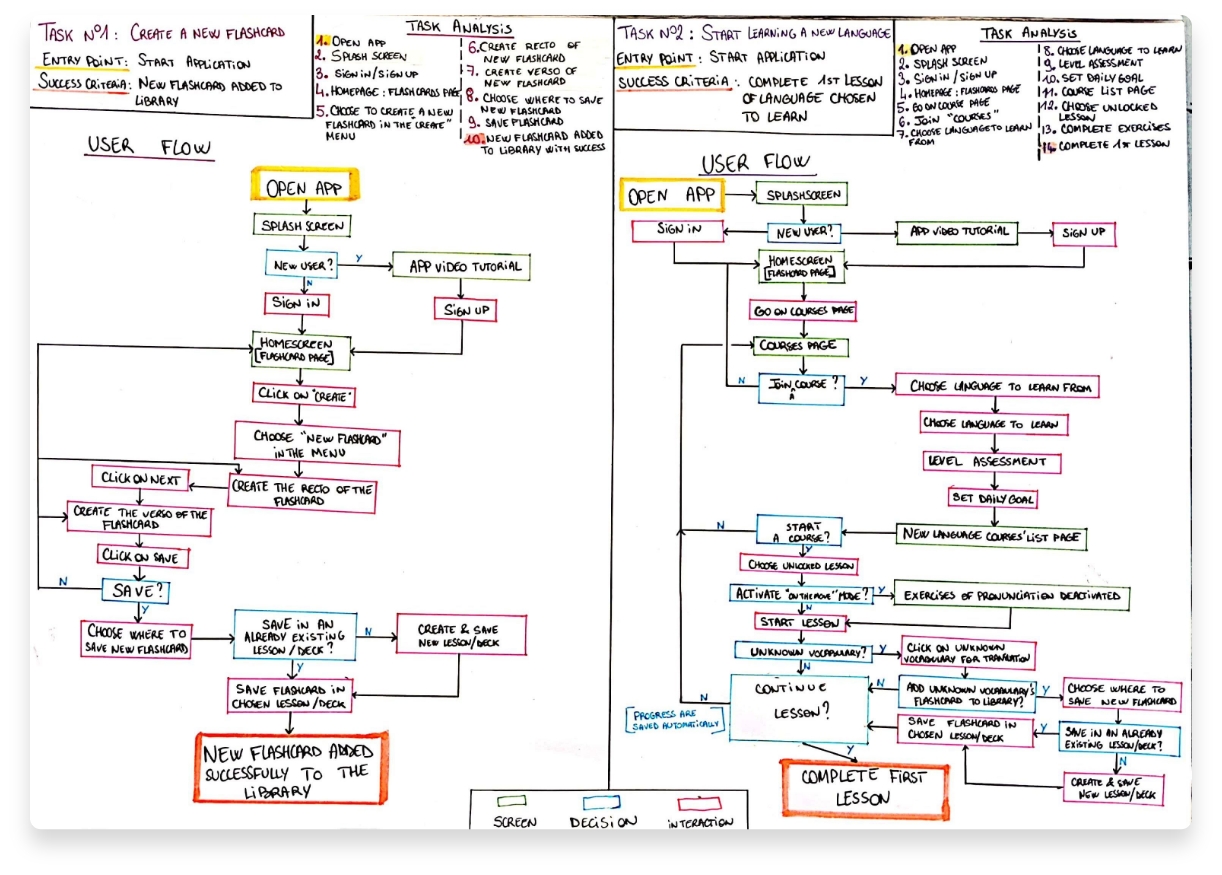 TASK Nº1: CREATE A NEW FLASHCARD
ENTRY POINT: START APPLICATION
SUCCESS CRITERIA: NEW FLASHCARD ADDED TO
LIBRARY
TASK ANALYSIS
1. OPEN APP
2. SPLASH SCREEN
3. SIGN IN/SIGN UP
4. HOMEPAGE: FLASHCARDS PAGE
5. CHOOSE TO CREATE A NEW
FLASHCARD IN THE "CREATE"
MENU
6. CREATE RECTO OF
NEW FLASHCARD
7. CREATE VERSO OF
NEW FLASHCARD
8. CHOOSE WHERE TO SAVE
NEW FLASHCARD
9. SAVE FLASHCARD
10. NEW FLASHCARD ADDED
TO LIBRARY WITH SUCCESS
USER FLOW
OPEN APP
SPLASH SCREEN
NEW USER?
Y
APP VIDEO TUTORIAL
N
SIGN IN
SIGN UP
HOMESCREEN
[FLASHCARD PAGE]
CLICK ON "CREATE"
CHOOSE "NEW FLASHCARD"
IN THE MENU
CREATE THE RECTO OF THE
FLASHCARD
CLICK ON NEXT
CREATE THE VERSO OF THE
FLASHCARD
CLICK ON SAVE
N
SAVE?
Y
CHOOSE WHERE TO
SAVE NEW FLASHCARD
SAVE IN AN
ALREADY EXISTING
LESSON/DECK?
N
CREATE & SAVE
NEW LESSON/DECK
Y
SAVE FLASHCARD IN
CHOSEN LESSON/DECK
NEW FLASHCARD ADDED
SUCCESSFULLY TO THE
LIBRARY
TASK Nº2: START LEARNING A NEW LANGUAGE
ENTRY POINT: START APPLICATION
SUCCESS CRITERIA: COMPLETE 1ST LESSON
OF LANGUAGE CHOSEN
TO LEARN
TASK ANALYSIS
1. OPEN APP
2. SPLASH SCREEN
3. SIGN IN/SIGN UP
4. HOMEPAGE: FLASHCARD PAGE
5. GO ON COURSE PAGE
6. JOIN "COURSES"
7. CHOOSE LANGUAGE TO LEARN
FROM
8. CHOOSE LANGUAGE TO LEARN
9. LEVEL ASSESSMENT
10. SET DAILY GOAL
11. COURSE LIST PAGE
12. CHOOSE UNLOCKED
LESSON
13. COMPLETE EXERCISES
14. COMPLETE 1ST LESSON
USER FLOW
OPEN APP
SPLASHSCREEN
SIGN IN
NEW USER?
APP VIDEO TUTORIAL
SIGN UP
HOMESCREEN
[FLASHCARD PAGE]
GO ON COURSES PAGE
COURSES PAGE
N
JOIN A COURSE?
Y
CHOOSE LANGUAGE TO LEARN FROM
CHOOSE LANGUAGE TO LEARN
LEVEL ASSESSMENT
SET DAILY GOAL
NEW LANGUAGE COURSES' LIST PAGE
N
START
A COURSE?
Y
CHOOSE UNLOCKED LESSON
ACTIVATE "ON THE MOVE" MODE?
Y
EXERCISES OF PRONUNCIATION DEACTIVATED
N
START LESSON
UNKNOWN VOCABULARY?
Y
CLICK ON UNKNOWN
VOCABULARY FOR TRANSLATION
N
CONTINUE
LESSON?
N
ADD UNKNOWN VOCABULARY'S
FLASHCARD TO LIBRARY?
Y
CHOOSE WHERE TO
SAVE NEW FLASHCARD
N
[PROGRESS ARE
SAVED AUTOMATICALLY]
SAVE FLASHCARD IN
CHOSEN LESSON/DECK
Y
SAVE IN AN ALREADY
EXISTING LESSON/DECK?
N
CREATE & SAVE
NEW LESSON/DECK
Y
COMPLETE FIRST
LESSON
SCREEN
DECISION
INTERACTION